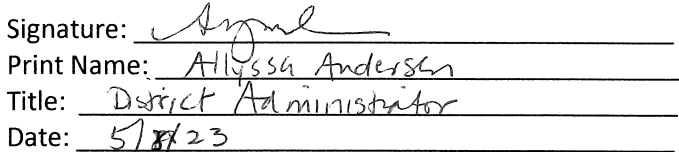 Signature:
Print Name: Allyssa Andersen
Title: District Administrator
Date: 5/8/23